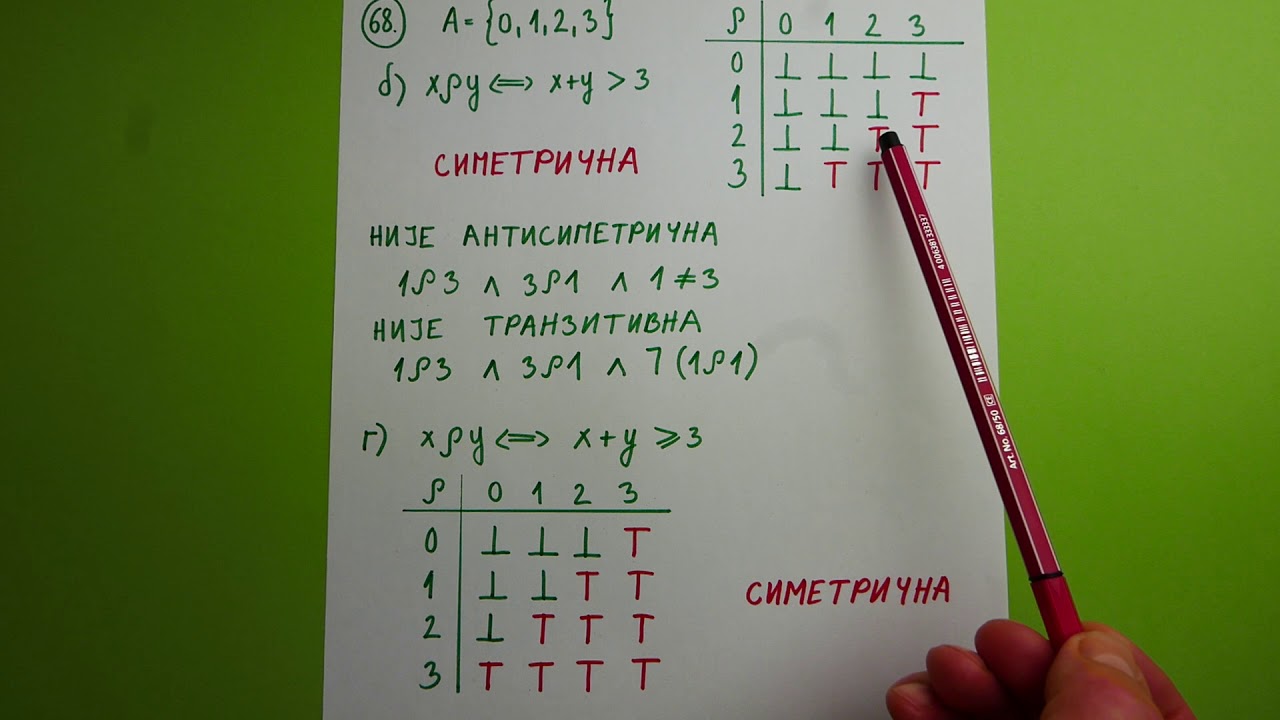 68. A = {0, 1, 2, 3}
б) xρy ⟺ x+y > 3
ρ 0 1 2 3
0 ⊥ ⊥ ⊥ ⊥
1 ⊥ ⊥ ⊥ T
2 ⊥ ⊥ T T
3 ⊥ T T T
СИМЕТРИЧНА
НИЈЕ АНТИСИМЕТРИЧНА
1ρ3 ∧ 3ρ1 ∧ 1 ≠ 3
НИЈЕ ТРАНЗИТИВНА
1ρ3 ∧ 3ρ1 ∧ ¬(1ρ1)
г) xρy ⟺ x+y ≥ 3
ρ 0 1 2 3
0 ⊥ ⊥ ⊥ T
1 ⊥ ⊥ T T
2 ⊥ T T T
3 T T T T
СИМЕТРИЧНА
Art. No. 68/50 CE